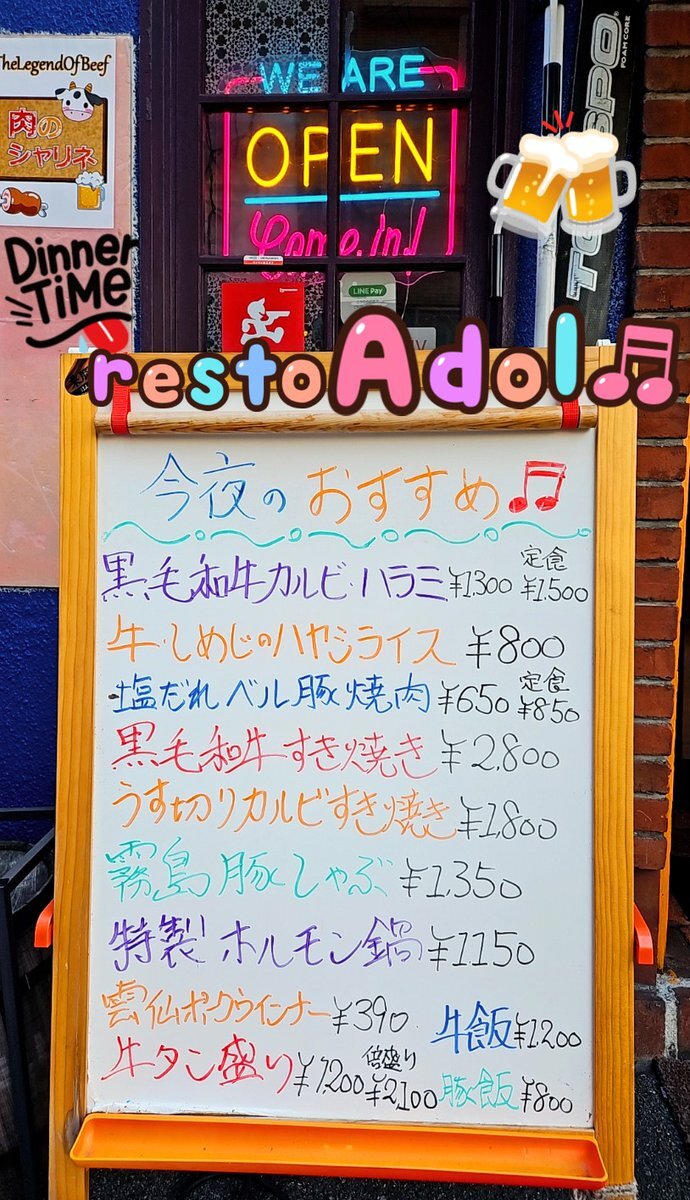 TheLegendOfBeef
肉の
シャリネ
WE ARE
OPEN
Come in!
LINE Pay
Dinner
TiME
restoAdol
今夜のおすすめ
黒毛和牛カルビ・ハラミ ¥1,300 定食 ¥1,500
牛・しめじのハヤシライス ¥800
塩だれベル豚焼肉 ¥650 定食 ¥850
黒毛和牛すき焼き ¥2,800
うす切りカルビすき焼き ¥1,800
霧島豚しゃぶ ¥1,350
特製ホルモン鍋 ¥1150
雲仙ポークウインナー ¥390
牛飯 ¥1200
牛タン盛り ¥1,200 倍盛り ¥2,100
豚飯 ¥800
FOAM CORE